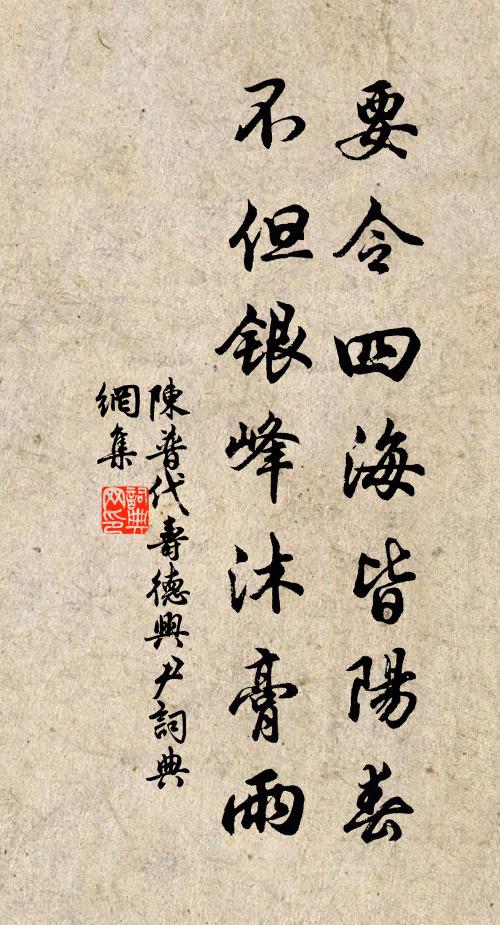 要令四海皆陽春
不但銀峰沐膏雨
陳普代壽德興尹詞典
網集
詞典
网印